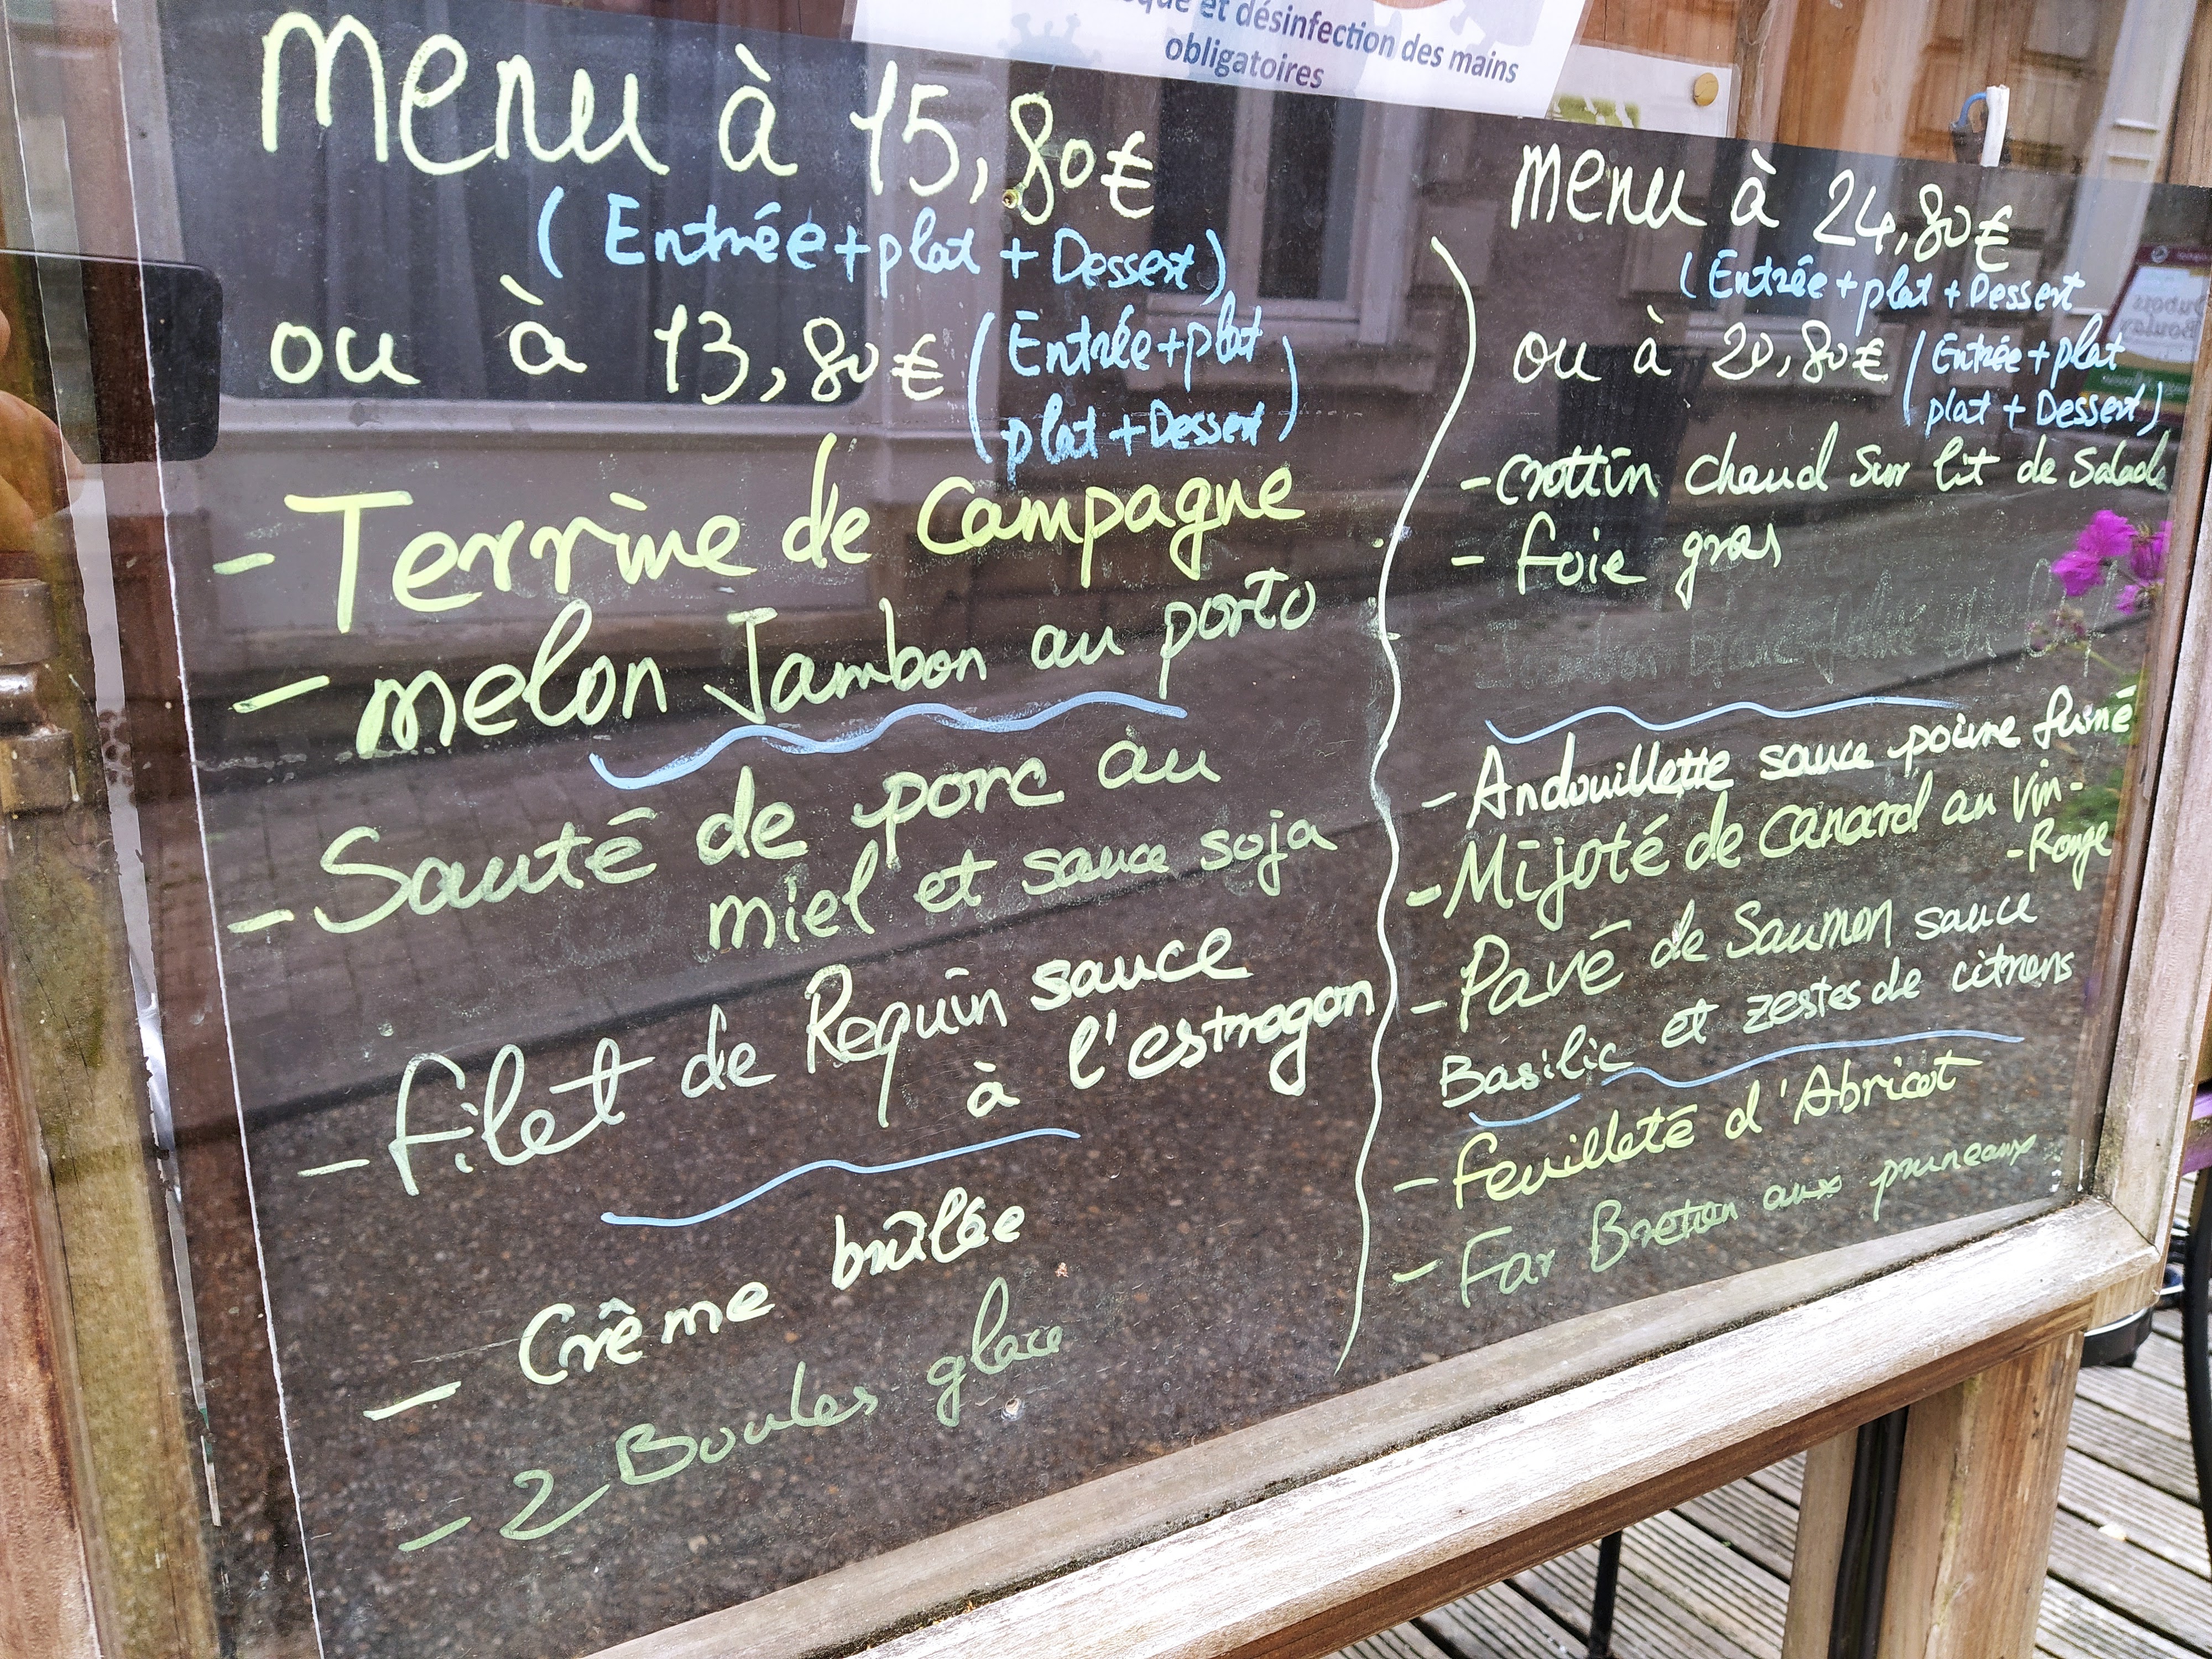 et désinfection des mains
obligatoires
Menu à 15,80€
(Entrée+plat+Dessert)
ou à 13,80€ (Entrée+plat
plat+Dessert)
- Terrine de Campagne
- melon Jambon au porto
- Sauté de porc au
miel et sauce soja
- filet de Requin sauce
à l'estragon
- Crême brûlée
- 2 Boules glace
Menu à 24,80€
(Entrée+plat+Dessert
ou à 20,80€ (Entrée+plat
plat+Dessert)
- Crottin chaud sur lit de Salade
- foie gras
- Andouillette sauce poivre fumé
- Mijoté de canard au vin-
-Rouge
- Pavé de Saumon sauce
Basilic et zestes de citrons
- feuilleté d'Abricot
- Far Breton aux pruneaux